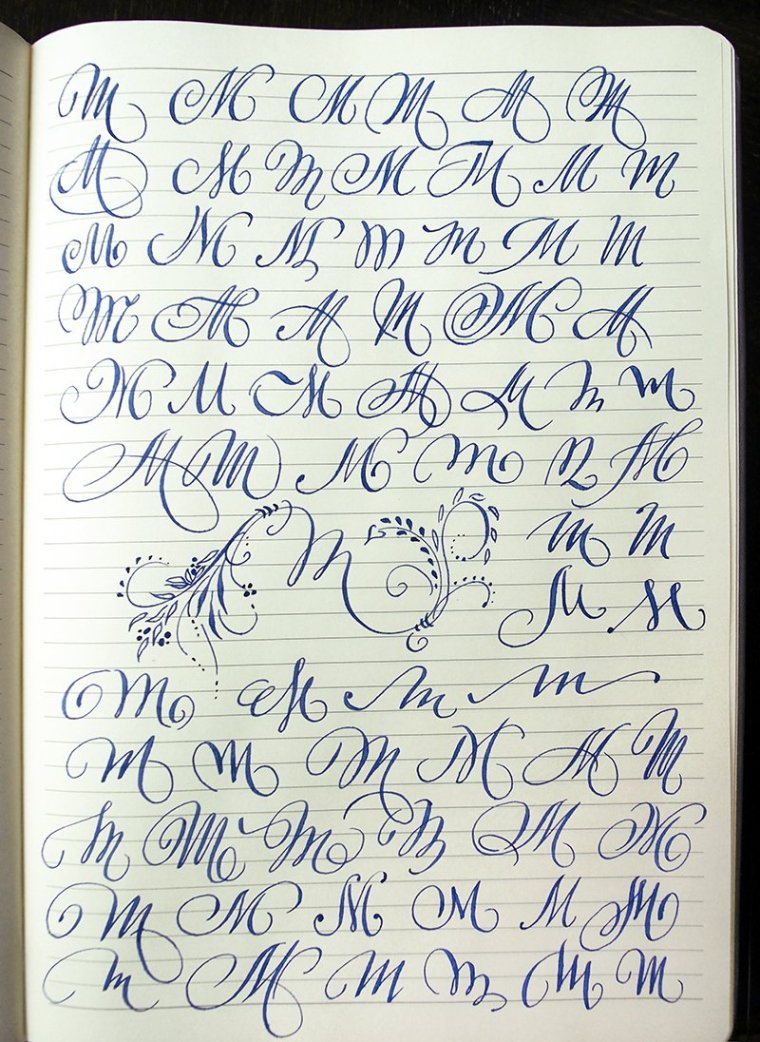 M M M M M M
M M M M M M M
M M M M M M M
M M M M M M
M M M M M M M
M M M M M M
M M M
M M
M M M M
M M M M M M
M M M M M M
M M M M M M
M M M M M M